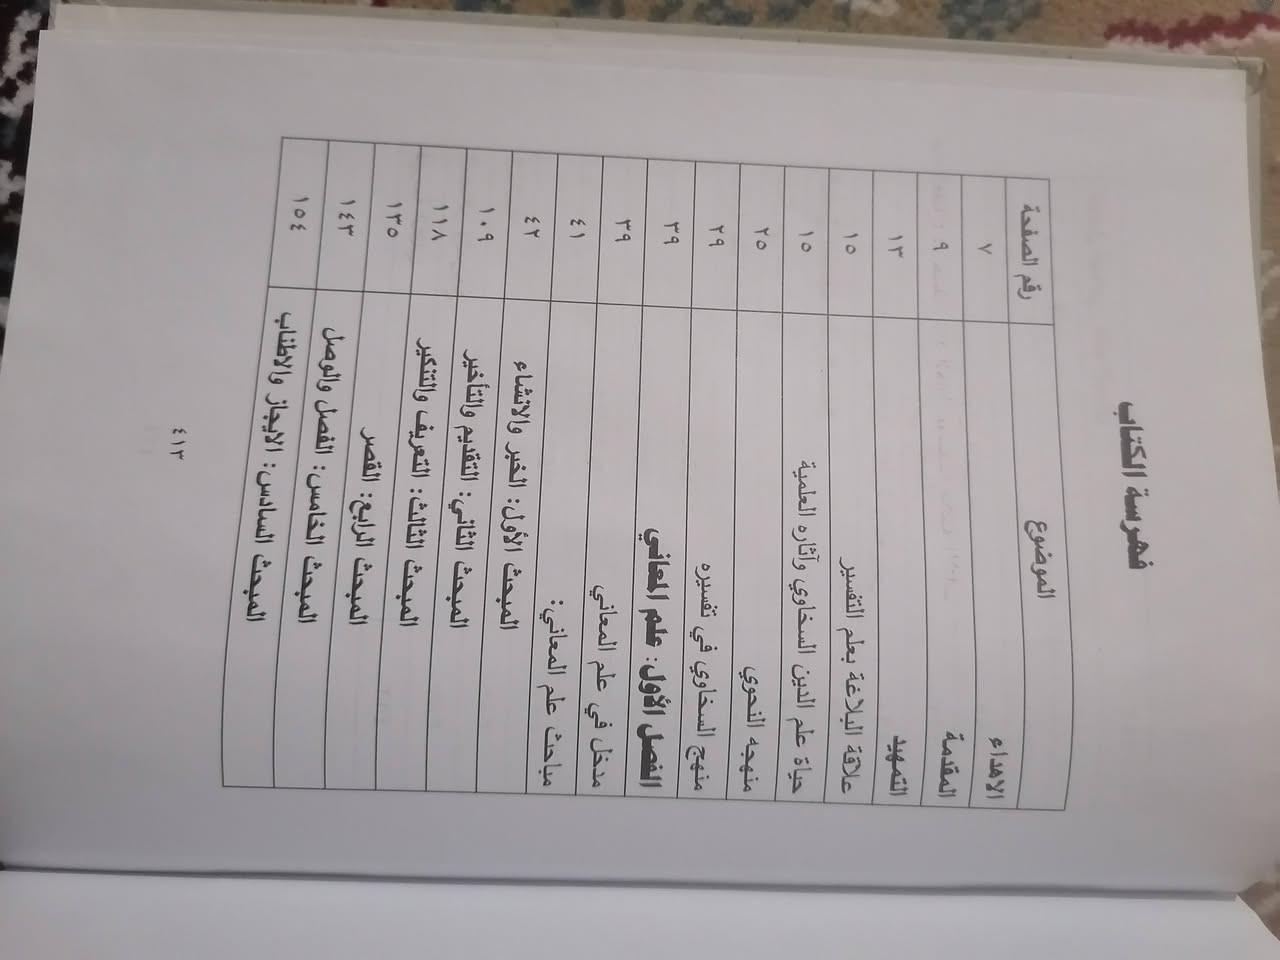 فهرسة الكتاب
الموضوع رقم الصفحة
الاهداء ٧
المقدمة ٩
التمهيد ١٣
علاقة البلاغة بعلم التفسير ١٥
حياة علم الدين السخاوي وآثاره العلمية ١٥
منهجه النحوي ٢٥
منهج السخاوي في تفسيره ٢٩
الفصل الأول: علم المعاني ٣٩
مدخل في علم المعاني ٣٩
مباحث علم المعاني: ٤١
المبحث الأول: الخبر والانشاء ٤٢
المبحث الثاني: التقديم والتأخير ١٠٩
المبحث الثالث: التعريف والتنكير ١١٨
المبحث الرابع: القصر ١٣٥
المبحث الخامس: الفصل والوصل ١٤٣
المبحث السادس: الايجاز والاطناب ١٥٤
٤١٣